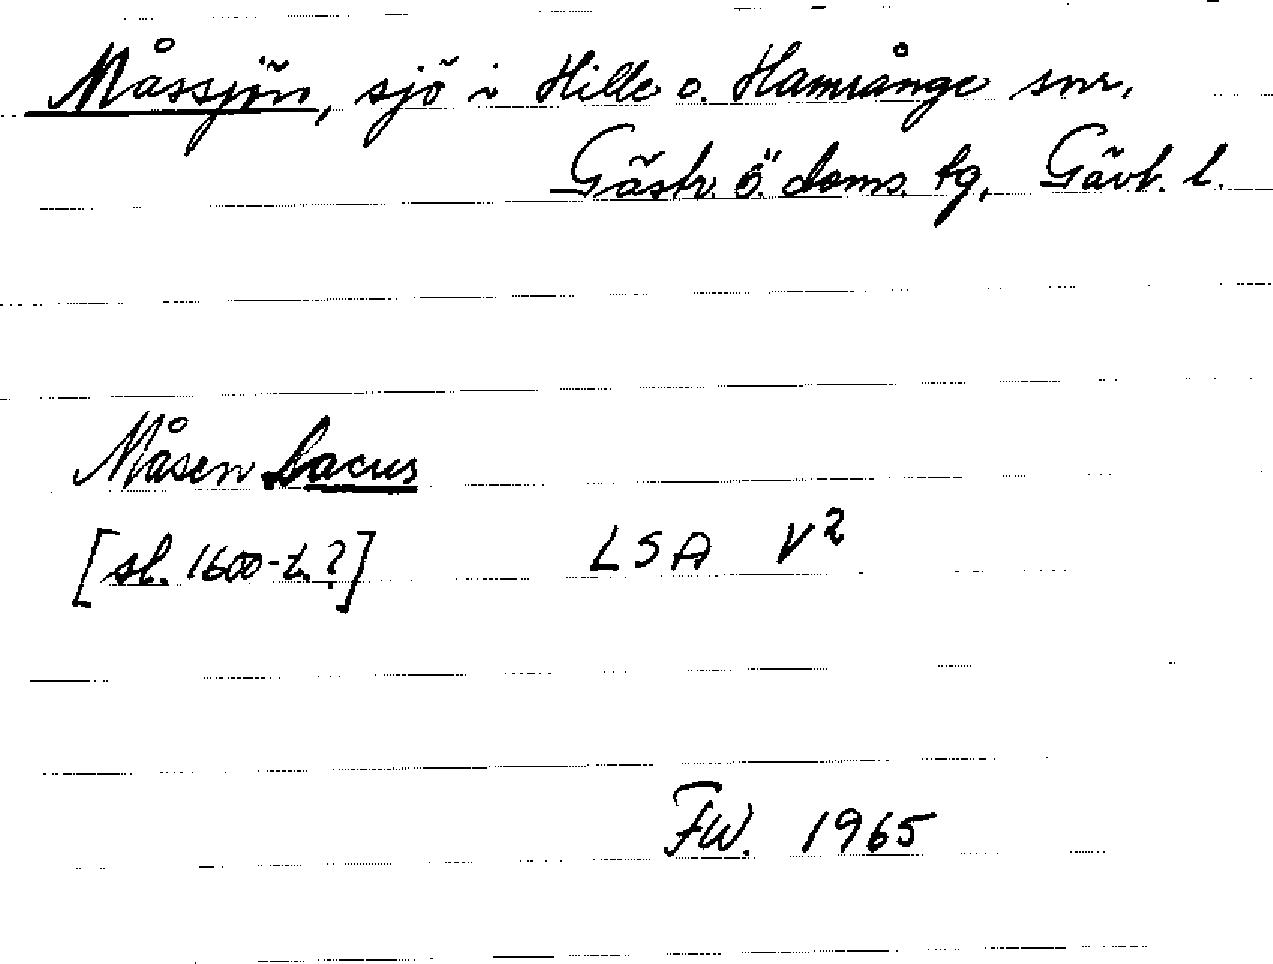 Måssjön, sjö i Hille o. Hamrånge snr,
Gästr. ö. doms. tg, Gävl. l.
Måsen Lacus
[sl. 1600-t. ?] LSA V²
FW. 1965